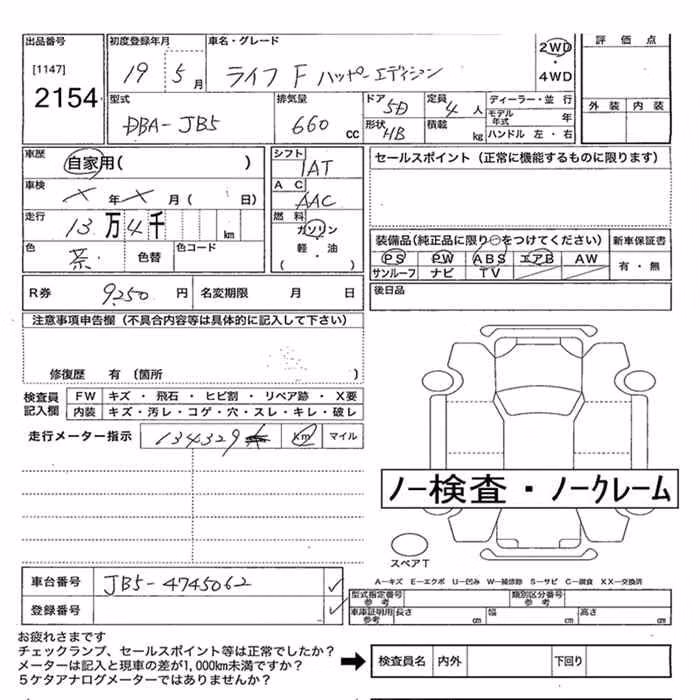 出品番号 初度登録年月 車名・グレード 2WD 評価点
[1147] 19 5月 ライフ F ハッピーエディション 4WD
2154 型式 排気量 ドア 5D 定員 4人 ディーラー・並行 外装 内装
DBA-JB5 660cc 形状 HB 積載 kg モデル年式 年
ハンドル 左・右
車歴 自家用( ) シフト IAT セールスポイント(正常に機能するものに限ります)
車検 × 年 × 月( 日) AC AAC
走行 13万4千 km 燃料 ガソリン
軽・油
( )
色 茶 色替 色コード
装備品(純正品に限り○をつけてください) 新車保証書
PS PW ABS エアB AW 有・無
サンルーフ ナビ TV
R券 9250円 名変期限 月 日 後日品
注意事項申告欄(不具合内容等は具体的に記入して下さい)
修復歴 有(箇所
検査員記入欄 FW キズ・飛石・ヒビ割・リペア跡・X要
内装 キズ・汚レ・コゲ・穴・スレ・キレ・破レ
走行メーター指示 134329 km マイル
ノー検査・ノークレーム
スペアT
車台番号 JB5-4745062
登録番号
A－キズ E－エクボ U－凹み W－補修跡 S－サビ C－腐食 XX－交換済
型式指定番号 参考 類別区分番号 参考
車庫証明用 参考 長さ cm 幅 cm 高さ cm
お疲れさまです
チェックランプ、セールスポイント等は正常でしたか?
メーターは記入と現車の差が1,000km未満ですか?
5ケタアナログメーターではありませんか?
検査員名 内外 下回り